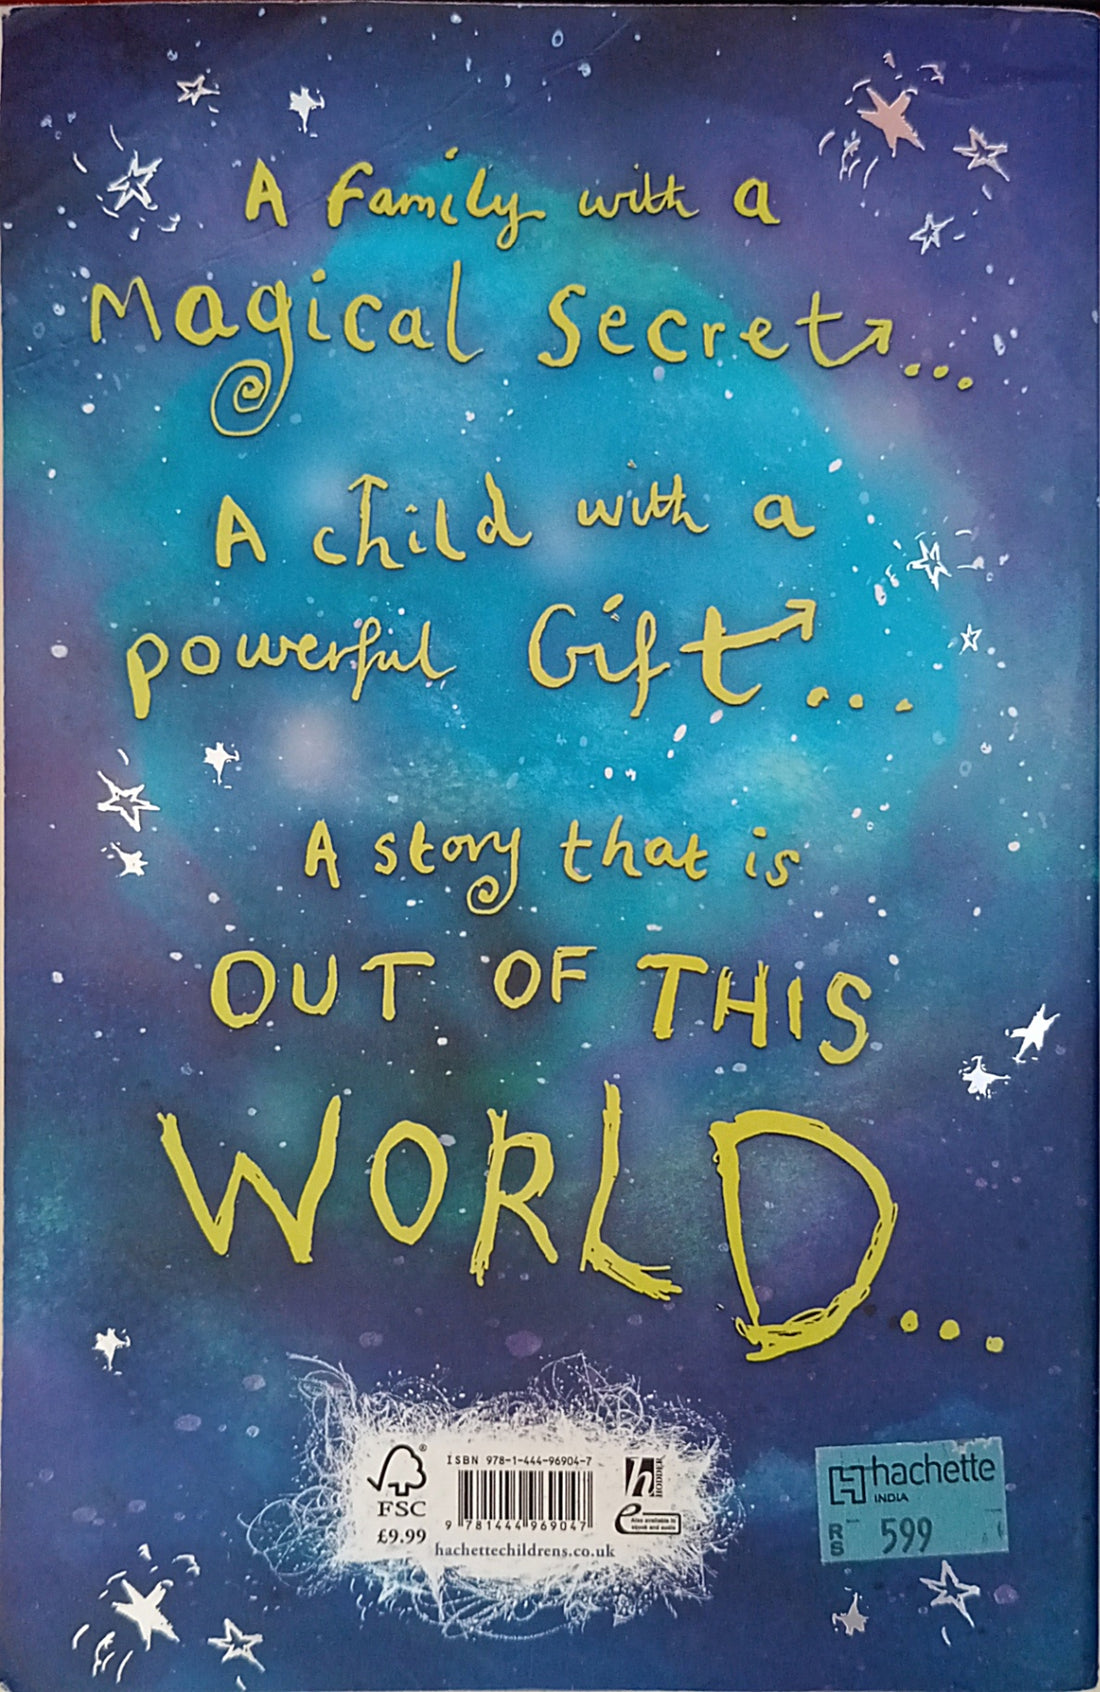 A family with a
Magical Secret...
A child with a
powerful Gift...
A story that is
OUT OF THIS
WORLD...
ISBN 978-1-444-96904-7
FSC
£9.99
9 781444 969047
h HODDER
e
Also available as
ebook and audio
hachettechildrens.co.uk
hachette
INDIA
RS 599